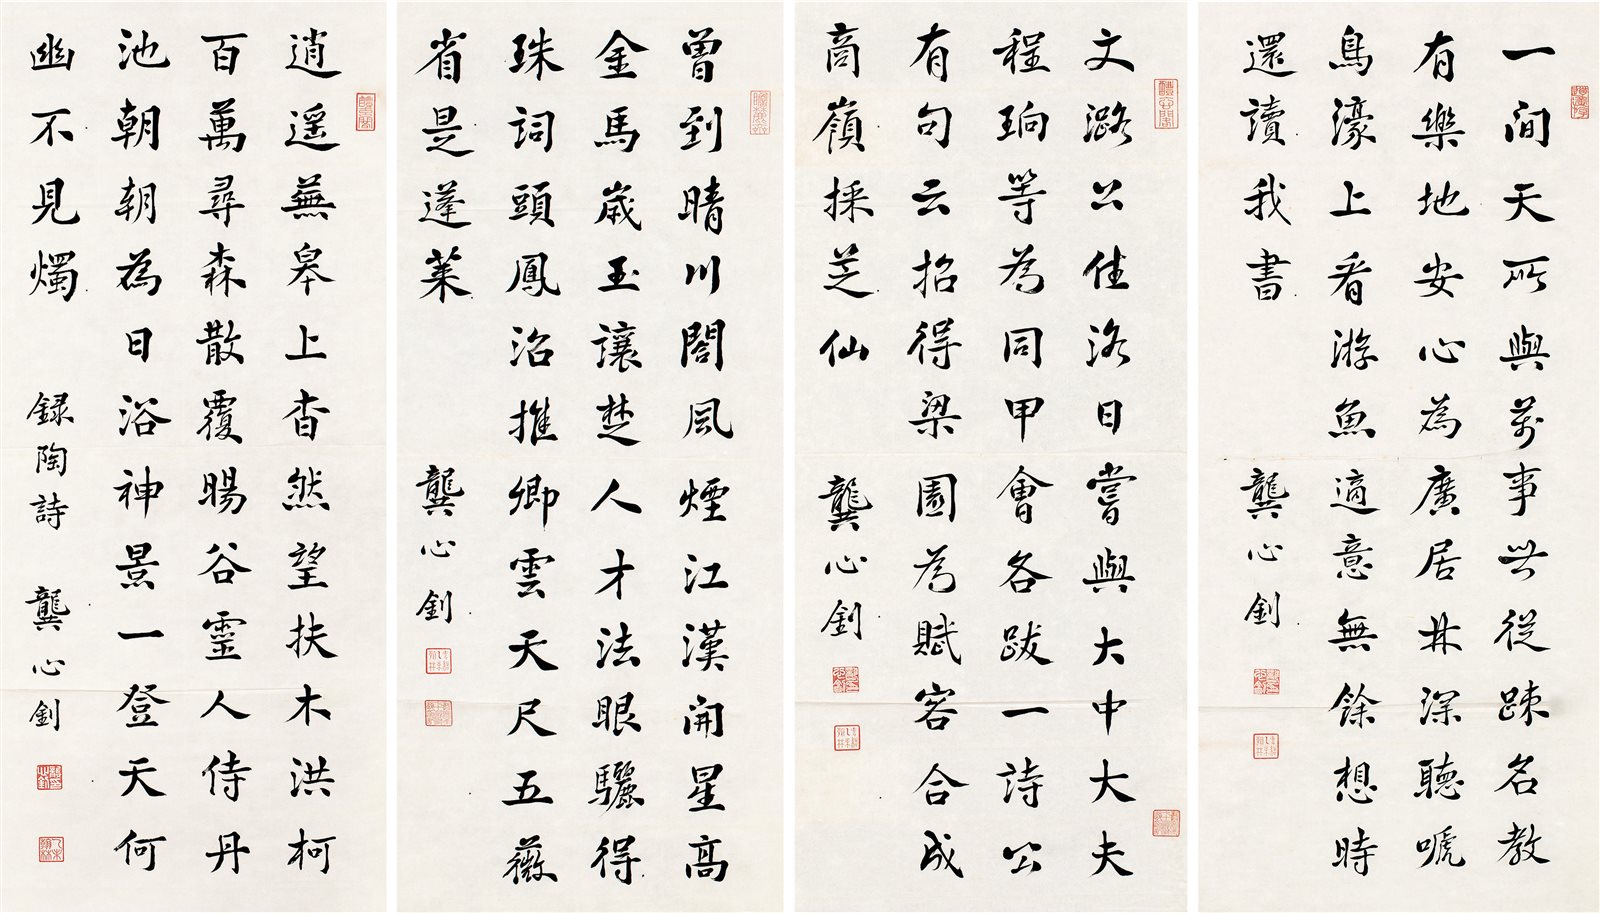 一間天所與萬事世從踈名教
有樂地安心為廣居林深聽嗁
鳥濠上看游魚適意無餘想時
還讀我書
龔心釗
文潞公住洛日嘗與大中大夫
程珦等為同甲會各跋一詩公
有句云招得梁園為賦客合成
商嶺採芝仙
龔心釗
曾到晴川閣風煙江漢開星高
金馬歲玉讓楚人才法眼驪得
珠詞頭鳳沼推卿雲天尺五薇
省是蓬萊
龔心釗
逍遥蕪皋上杳然望扶木洪柯
百萬尋森散覆暘谷靈人侍丹
池朝朝為日浴神景一登天何
幽不見燭
録陶詩
龔心釗